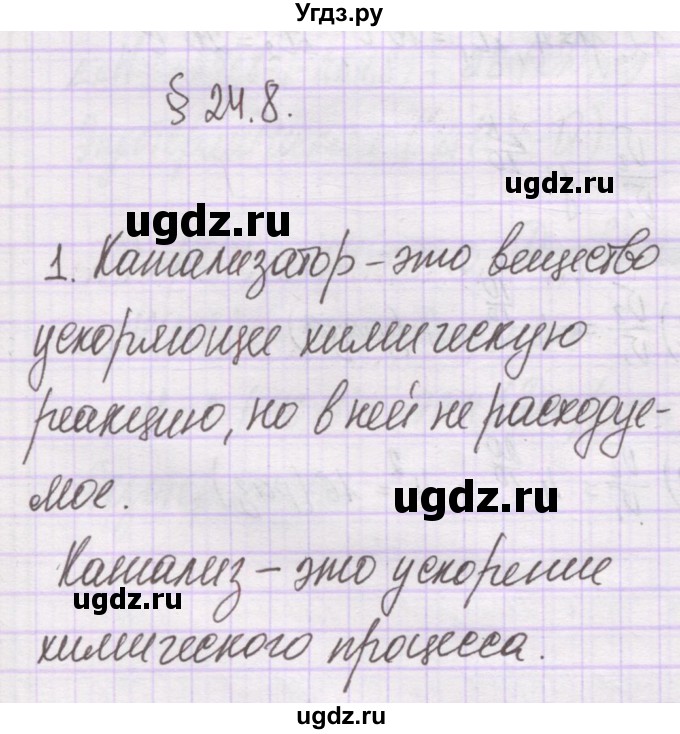 Угдз.ру
§ 24.8.
ugdz.ru
1. Катализатор – это вещество
ускоряющее химическую
ugdz.ru
реакцию, но в ней не расходуе-
мое.
ugdz.ru
Катализ – это ускорение
ugdz.ru
химического процесса.
ugdz.ru